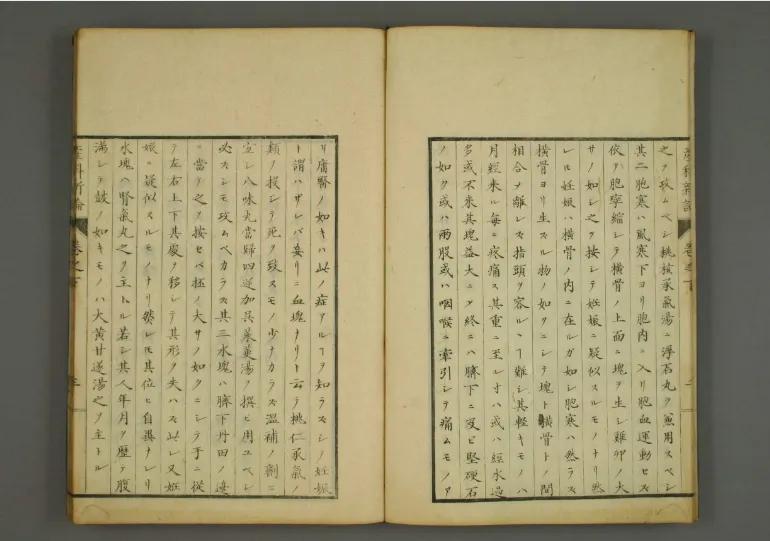 之ヲ攻ムベシ桃核承氣湯ニ浮石丸ヲ兼用スベシ
其二胞寒ハ風寒下ヨリ胞内ニ入リ胞血運動セズ
依テ胞攣縮シテ横骨ノ上面ニ塊ヲ生シ雞卵ノ大
サノ如シ之ヲ按シテ妊娠ニ疑似スルモノナリ然
レ𪜈妊娠ハ横骨ノ内ニ在ルガ如シ胞寒ハ然ラズ
横骨ヨリ生スル物ノ如クニシテ塊ト横骨トノ間
相合メ離レズ指頭ヲ容ルヽヿ難シ其輕キモノハ
月經来ル毎ニ疼痛ス其重ニ至ル寸ハ或ハ經水過
多或不来其塊益大ニメ終ニハ臍下ニ及ビ堅硬石
ノ如ク或ハ兩股或ハ咽喉ニ牽引シテ痛ムモノア
産科新論
巻之下
リ庸醫ノ如キハ此ノ症アルヿヲ知ラズシテ妊娠
ト謂ハザレバ妄リニ血塊ナリト云テ桃仁承氣ノ
類ヲ投シテ死ヲ致スモノ少ナカラズ温補ノ劑ニ
宜シ八味丸當歸四逆加呉茱萸湯ヲ撰ヒ用ユベシ
必スシモ攻ムベカラズ其三水塊ハ臍下丹田ノ邊
ニ當テ之ヲ按セバ抷ノ大サノ如クニシテ手ニ從
テ左右上下其處ヲ移シテ其形ヲ失ハズ此レ又妊
娠ニ疑似スルモノナリ然レ𪜈其位ヒ自異ナレリ
水塊ハ腎氣丸之ヲ主トル若シ其人年月ヲ歴テ腹
滿シテ鼓ノ如キモノハ大黄甘遂湯之ヲ主トル
産科新論
巻之下